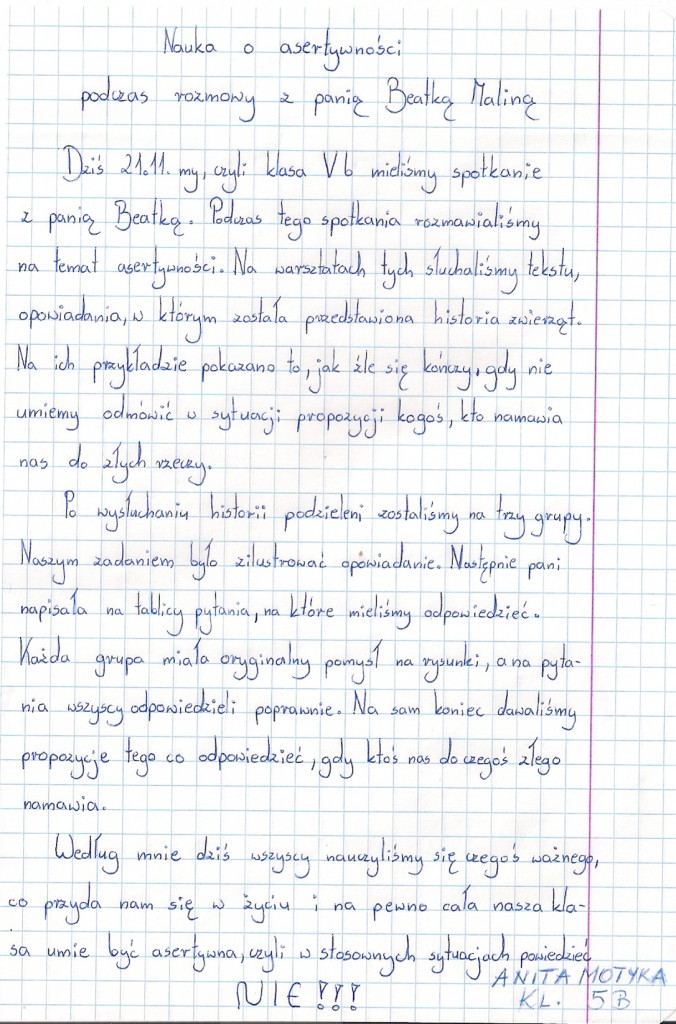 Nauka o asertywności
podczas rozmowy z panią Beatką Maliną
Dziś 21.11. my, czyli klasa V b mieliśmy spotkanie
z panią Beatką. Podczas tego spotkania rozmawialiśmy
na temat asertywności. Na warsztatach tych słuchaliśmy tekstu,
opowiadania, w którym została przedstawiona historia zwierząt.
Na ich przykładzie pokazano to, jak źle się kończy, gdy nie
umiemy odmówić w sytuacji propozycji kogoś, kto namawia
nas do złych rzeczy.
Po wysłuchaniu historii podzieleni zostaliśmy na trzy grupy.
Naszym zadaniem było zilustrować opowiadanie. Następnie pani
napisała na tablicy pytania, na które mieliśmy odpowiedzieć.
Każda grupa miała oryginalny pomysł na rysunki, a na pyta-
nia wszyscy odpowiedzieli poprawnie. Na sam koniec dawaliśmy
propozycje tego co odpowiedzieć, gdy ktoś nas do czegoś złego
namawia.
Według mnie dziś wszyscy nauczyliśmy się czegoś ważnego,
co przyda nam się w życiu i na pewno cała nasza kla-
sa umie być asertywna, czyli w stosownych sytuacjach powiedzieć
NIE!!!
ANITA MOTYKA
KL. 5B